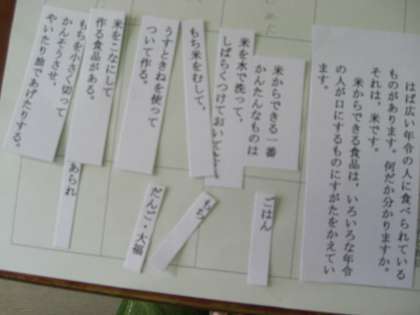 はば広い年令の人に食べられている
ものがあります。何だか分かりますか。
それは、米です。
米からできる食品は、いろいろな年令
の人が口にするものにすがたをかえてい
ます。
米からできる一番
かんたんなものは
ごはん
米を水で洗って、
しばらくつけておい
もち米をむして、
もち
うすときねを使って
ついて作る。
だんご・大福
米をこなにして
作る食品がある。
あられ
もちを小さく切って
かんそうさせ、
やいたり油であげたりする。